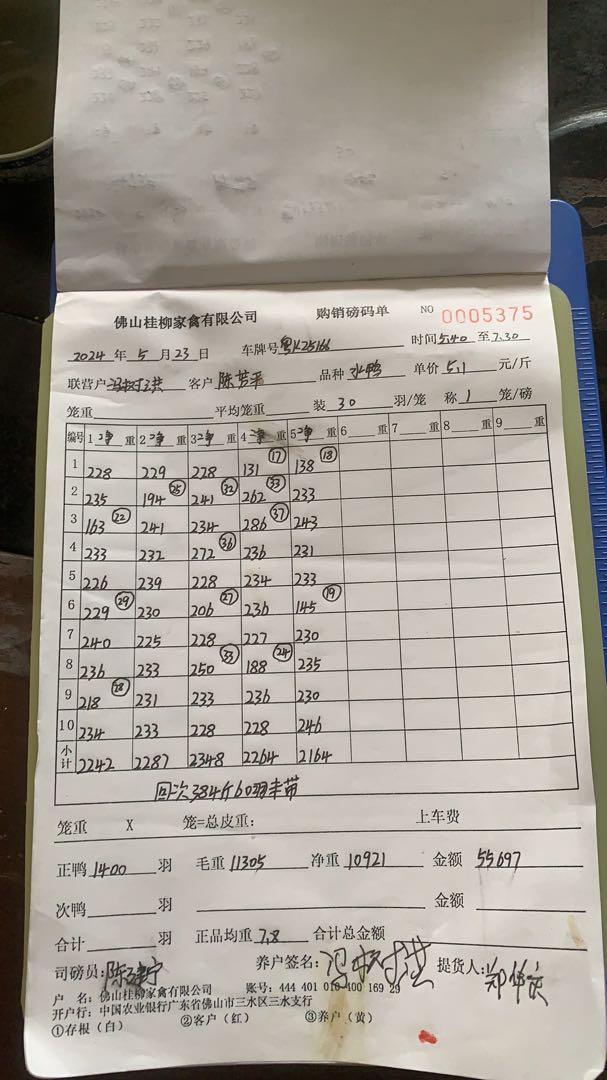 佛山桂柳家禽有限公司 购销磅码单 NO 0005375
2024 年 5 月 23 日 车牌号 粤K25166 时间 5.40 至 7.30
联营户 冯树洪 客户 陈芳平 品种 水鸭 单价 5.1 元/斤
笼重 平均笼重 装 30 羽/笼 称 1 笼/磅
编号 1 净 重 2 净 重 3 净 重 4 净 重 5 净 重 6 重 7 重 8 重 9 重
1 228 229 228 131 17 138 18
2 235 194 25 241 32 262 33 233
3 163 22 241 234 286 37 243
4 233 232 272 36 236 231
5 226 239 228 234 233
6 229 29 230 206 27 236 145 19
7 240 225 228 227 230
8 236 233 250 33 188 24 235
9 218 28 231 233 236 230
10 234 233 228 228 246
小计 2242 2287 2348 2264 2164
回次384斤60羽
笼重 X 笼=总皮重： 上车费
正鸭 1400 羽 毛重 11305 净重 10921 金额 55697
次鸭 羽 金额
合计 羽 正品均重 7.8 合计总金额
司磅员： 养户签名：冯树洪 提货人：
户 名：佛山桂柳家禽有限公司 账号：444 401 010 400 169 29
开户行：中国农业银行广东省佛山市三水区三水支行
①存根（白） ②客户（红） ③养户（黄）